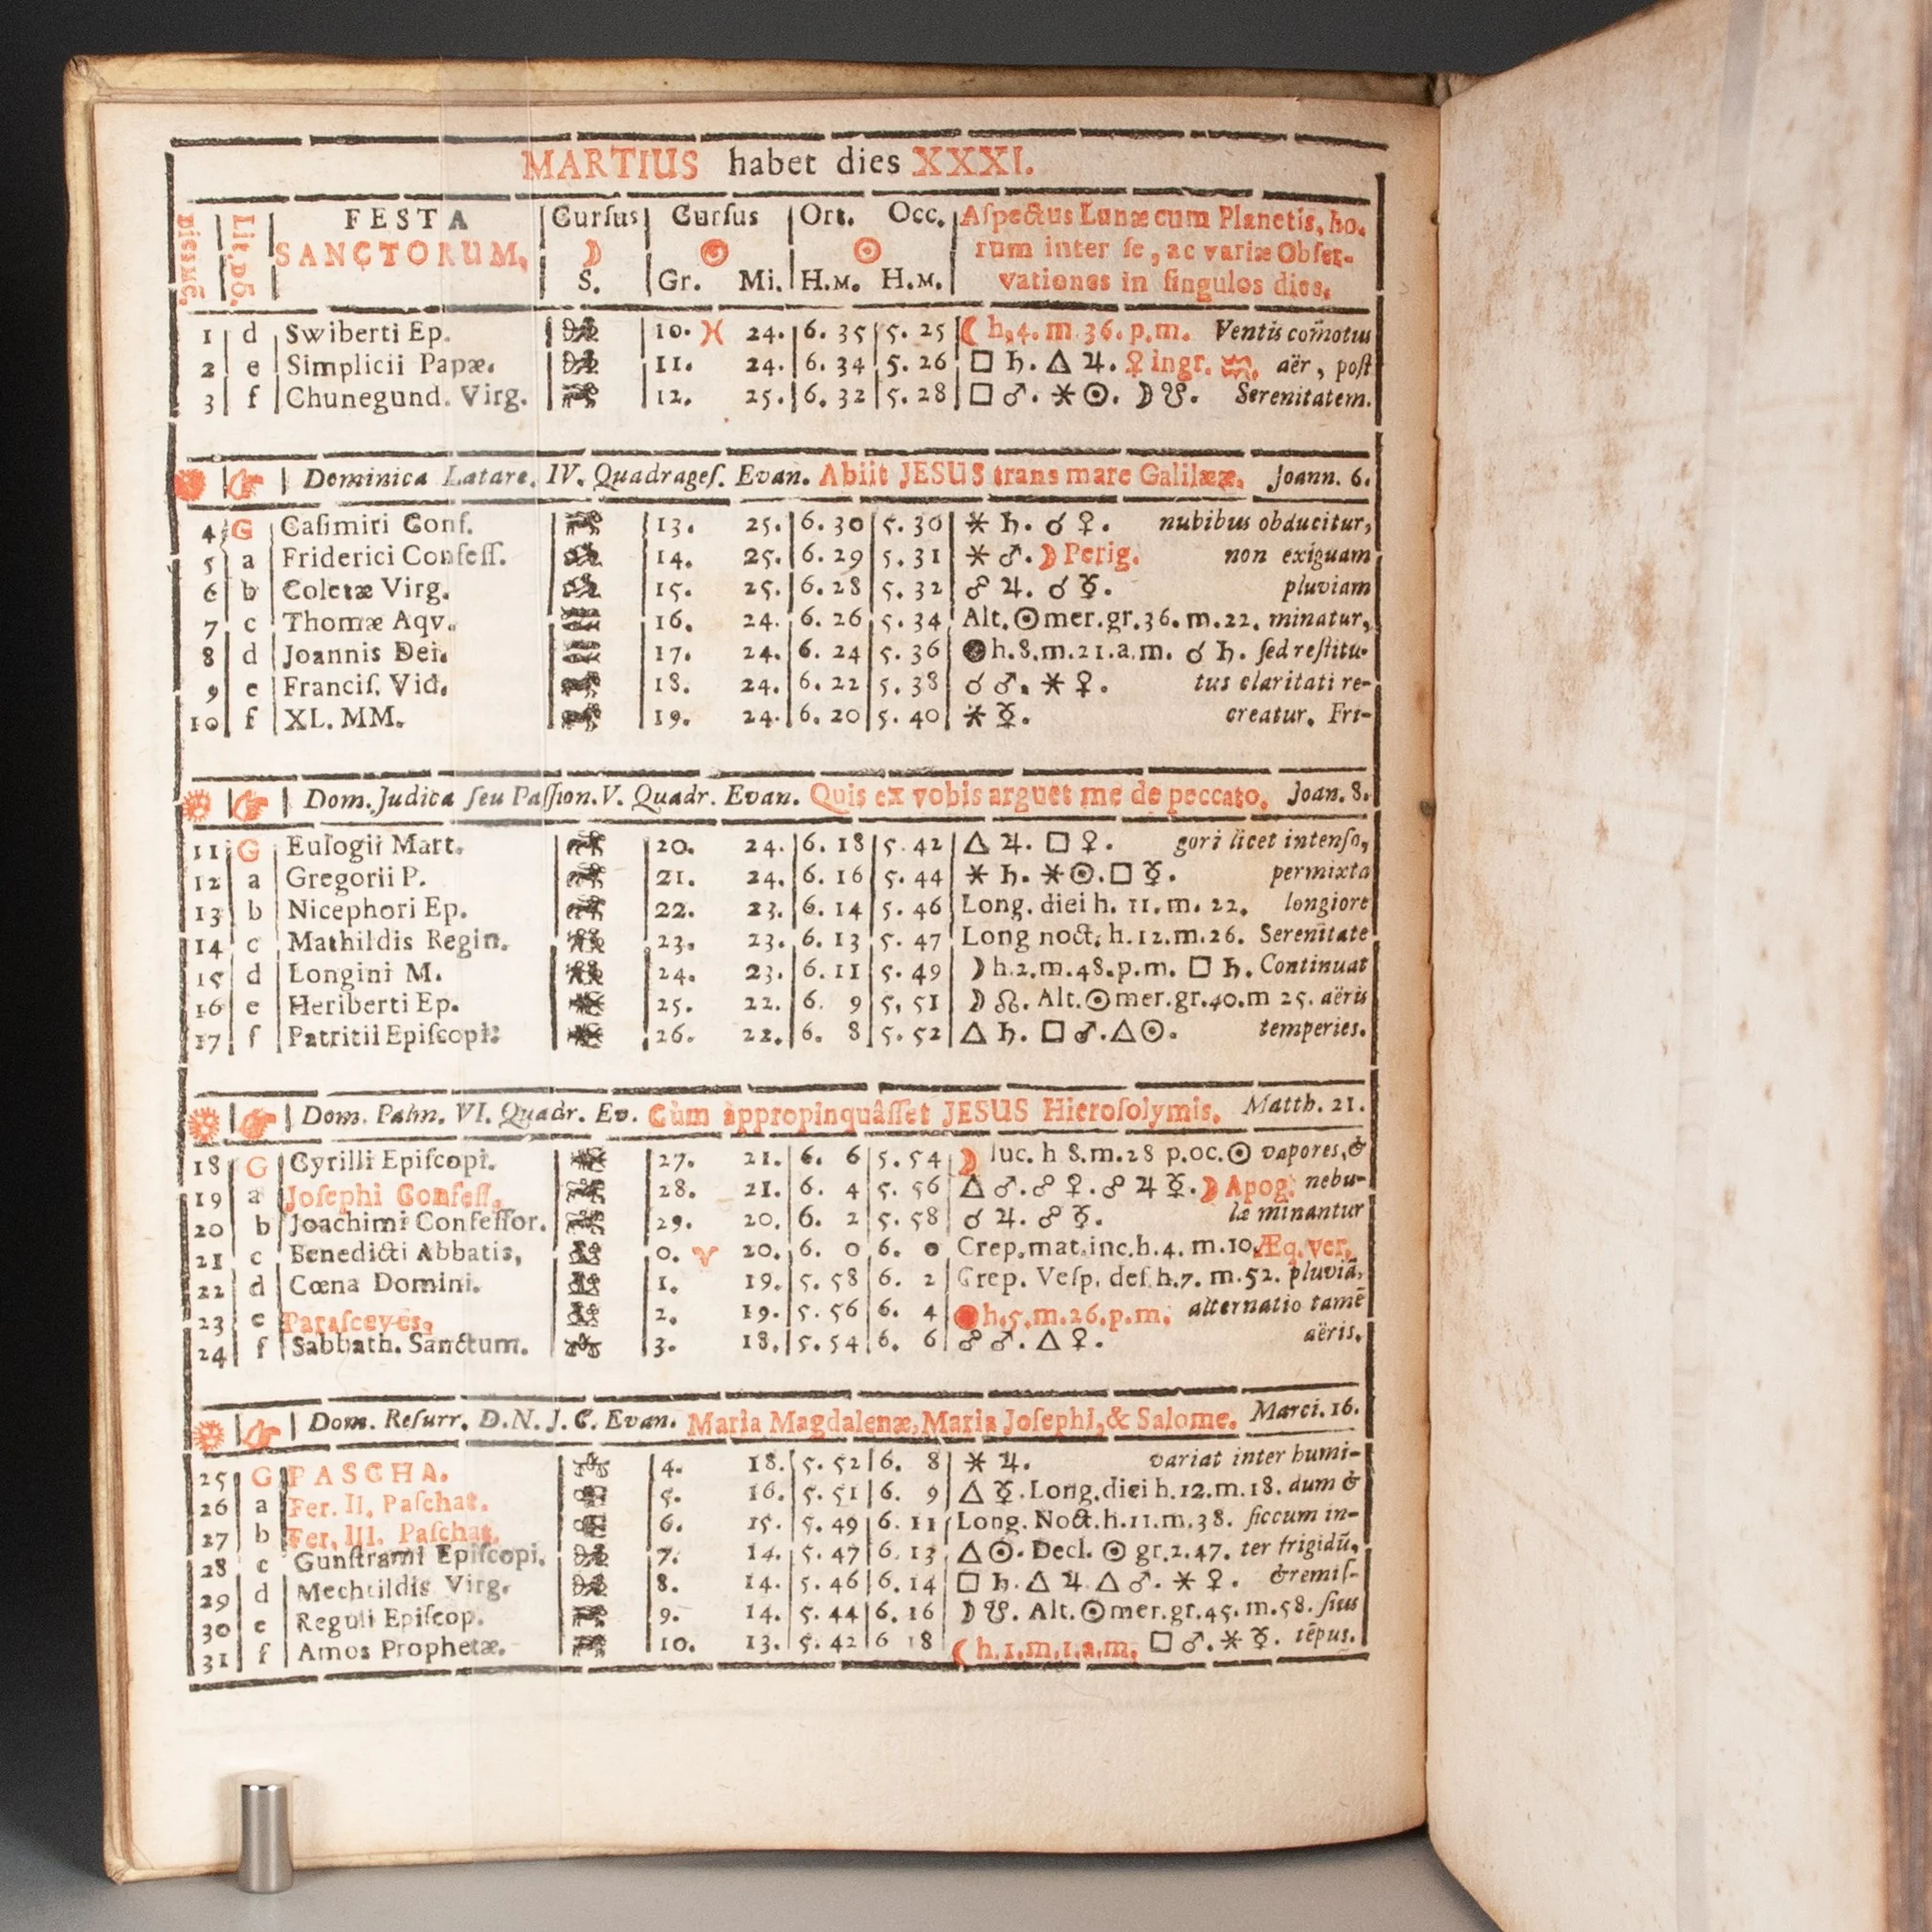 MARTIUS habet dies XXXI.
Dies Mẽ.
Lit. Dõ.
FESTA SANCTORUM.
Curſus ☽ S.
Curſus ☉ Gr. Mi.
Ort. Occ. ☉ H.M. H.M.
Aſpectus Lunæ cum Planetis, ho-
rum inter ſe, ac variæ Obſer-
vationes in ſingulos dies.
1 d Swiberti Ep. 10. ♓ 24. 6. 35 5. 25 ☾ h. 4. m. 36. p. m. Ventis com̃otus
2 e Simplicii Papæ. 11. 24. 6. 34 5. 26 □ ♄. △ ♃. ♀ ingr. ♒. aër, poſt
3 f Chunegund. Virg. 12. 25. 6. 32 5. 28 □ ♂. ⚹ ☉. ☽ ☋. Serenitatem.
☞ Dominica Lætare. IV. Quadrageſ. Evan. Abiit JESUS trans mare Galilææ. Joann. 6.
4 G Caſimiri Conf. 13. 25. 6. 30 5. 30 ⚹ ♄. ☌ ♀. nubibus obducitur,
5 a Friderici Confeſſ. 14. 25. 6. 29 5. 31 ⚹ ♂. ☽ Perig. non exiguam
6 b Coletæ Virg. 15. 25. 6. 28 5. 32 ☍ ♃. ☌ ☿. pluviam
7 c Thomæ Aqv. 16. 24. 6. 26 5. 34 Alt. ☉ mer. gr. 36. m. 22. minatur,
8 d Joannis Dei. 17. 24. 6. 24 5. 36 ● h. 8. m. 21. a. m. ☌ ♄. ſed reſtitu-
9 e Franciſ. Vid. 18. 24. 6. 22 5. 38 ☌ ♂. ⚹ ♀. tus claritati re-
10 f XL. MM. 19. 24. 6. 20 5. 40 ⚹ ☿. creatur. Fri-
☞ Dom. Judica ſeu Paſſion. V. Quadr. Evan. Quis ex vobis arguet me de peccato. Joan. 8.
11 G Eulogii Mart. 20. 24. 6. 18 5. 42 △ ♃. □ ♀. gori licet intenſo,
12 a Gregorii P. 21. 24. 6. 16 5. 44 ⚹ ♄. ⚹ ☉. □ ☿. permixta
13 b Nicephori Ep. 22. 23. 6. 14 5. 46 Long. diei h. 11. m. 22. longiore
14 c Mathildis Regin. 23. 23. 6. 13 5. 47 Long noct. h. 12. m. 26. Serenitate
15 d Longini M. 24. 23. 6. 11 5. 49 ☽ h. 2. m. 48. p. m. □ ♄. Continuat
16 e Heriberti Ep. 25. 22. 6. 9 5. 51 ☽ ☊. Alt. ☉ mer. gr. 40. m 25. aëris
17 f Patritii Epiſcopi. 26. 22. 6. 8 5. 52 △ ♄. □ ♂. △ ☉. temperies.
☞ Dom. Palm. VI. Quadr. Ev. Cùm àppropinquâſſet JESUS Hieroſolymis. Matth. 21.
18 G Cyrilli Epiſcopi. 27. 21. 6. 6 5. 54 ☽ luc. h 8. m. 28 p. oc. ☉ vapores, &
19 a Joſephi Confeſſ. 28. 21. 6. 4 5. 56 △ ♂. ☍ ♀. ☍ ♃ ☿. ☽ Apog. nebu-
20 b Joachimi Confeſſor. 29. 20. 6. 2 5. 58 ☌ ♃. ☍ ☿. læ minantur
21 c Benedicti Abbatis, 0. ♈ 20. 6. 0 6. 0 Crep. mat. inc. h. 4. m. 10. Æq. ver.
22 d Cœna Domini. 1. 19. 5. 58 6. 2 Crep. Veſp. deſ. h. 7. m. 52. pluviã,
23 e Paraſceves. 2. 19. 5. 56 6. 4 ● h. 5. m. 26. p. m. alternatio tamẽ
24 f Sabbath. Sanctum. 3. 18. 5. 54 6. 6 ☍ ♂. △ ♀. aëris.
☞ Dom. Reſurr. D. N. J. C. Evan. Maria Magdalenæ, Maria Joſephi, & Salome. Marci. 16.
25 G PASCHA. 4. 18. 5. 52 6. 8 ⚹ ♃. variat inter humi-
26 a Fer. II. Paſchat. 5. 16. 5. 51 6. 9 △ ☿. Long. diei h. 12. m. 18. dum &
27 b Fer. III. Paſchat. 6. 15. 5. 49 6. 11 Long. Noct. h. 11. m. 38. ſiccum in-
28 c Gunſtrami Epiſcopi. 7. 14. 5. 47 6. 13 △ ☉. Decl. ☉ gr. 2. 47. ter frigidũ,
29 d Mechtildis Virg. 8. 14. 5. 46 6. 14 □ ♄. △ ♃ △ ♂. ⚹ ♀. & remiſ-
30 e Reguli Epiſcop. 9. 14. 5. 44 6. 16 ☽ ☋. Alt. ☉ mer. gr. 45. m. 58. ſius
31 f Amos Prophetæ. 10. 13. 5. 42 6 18 ☾ h. 1. m. 1. a. m. □ ♂. ⚹ ☿. tẽpus.